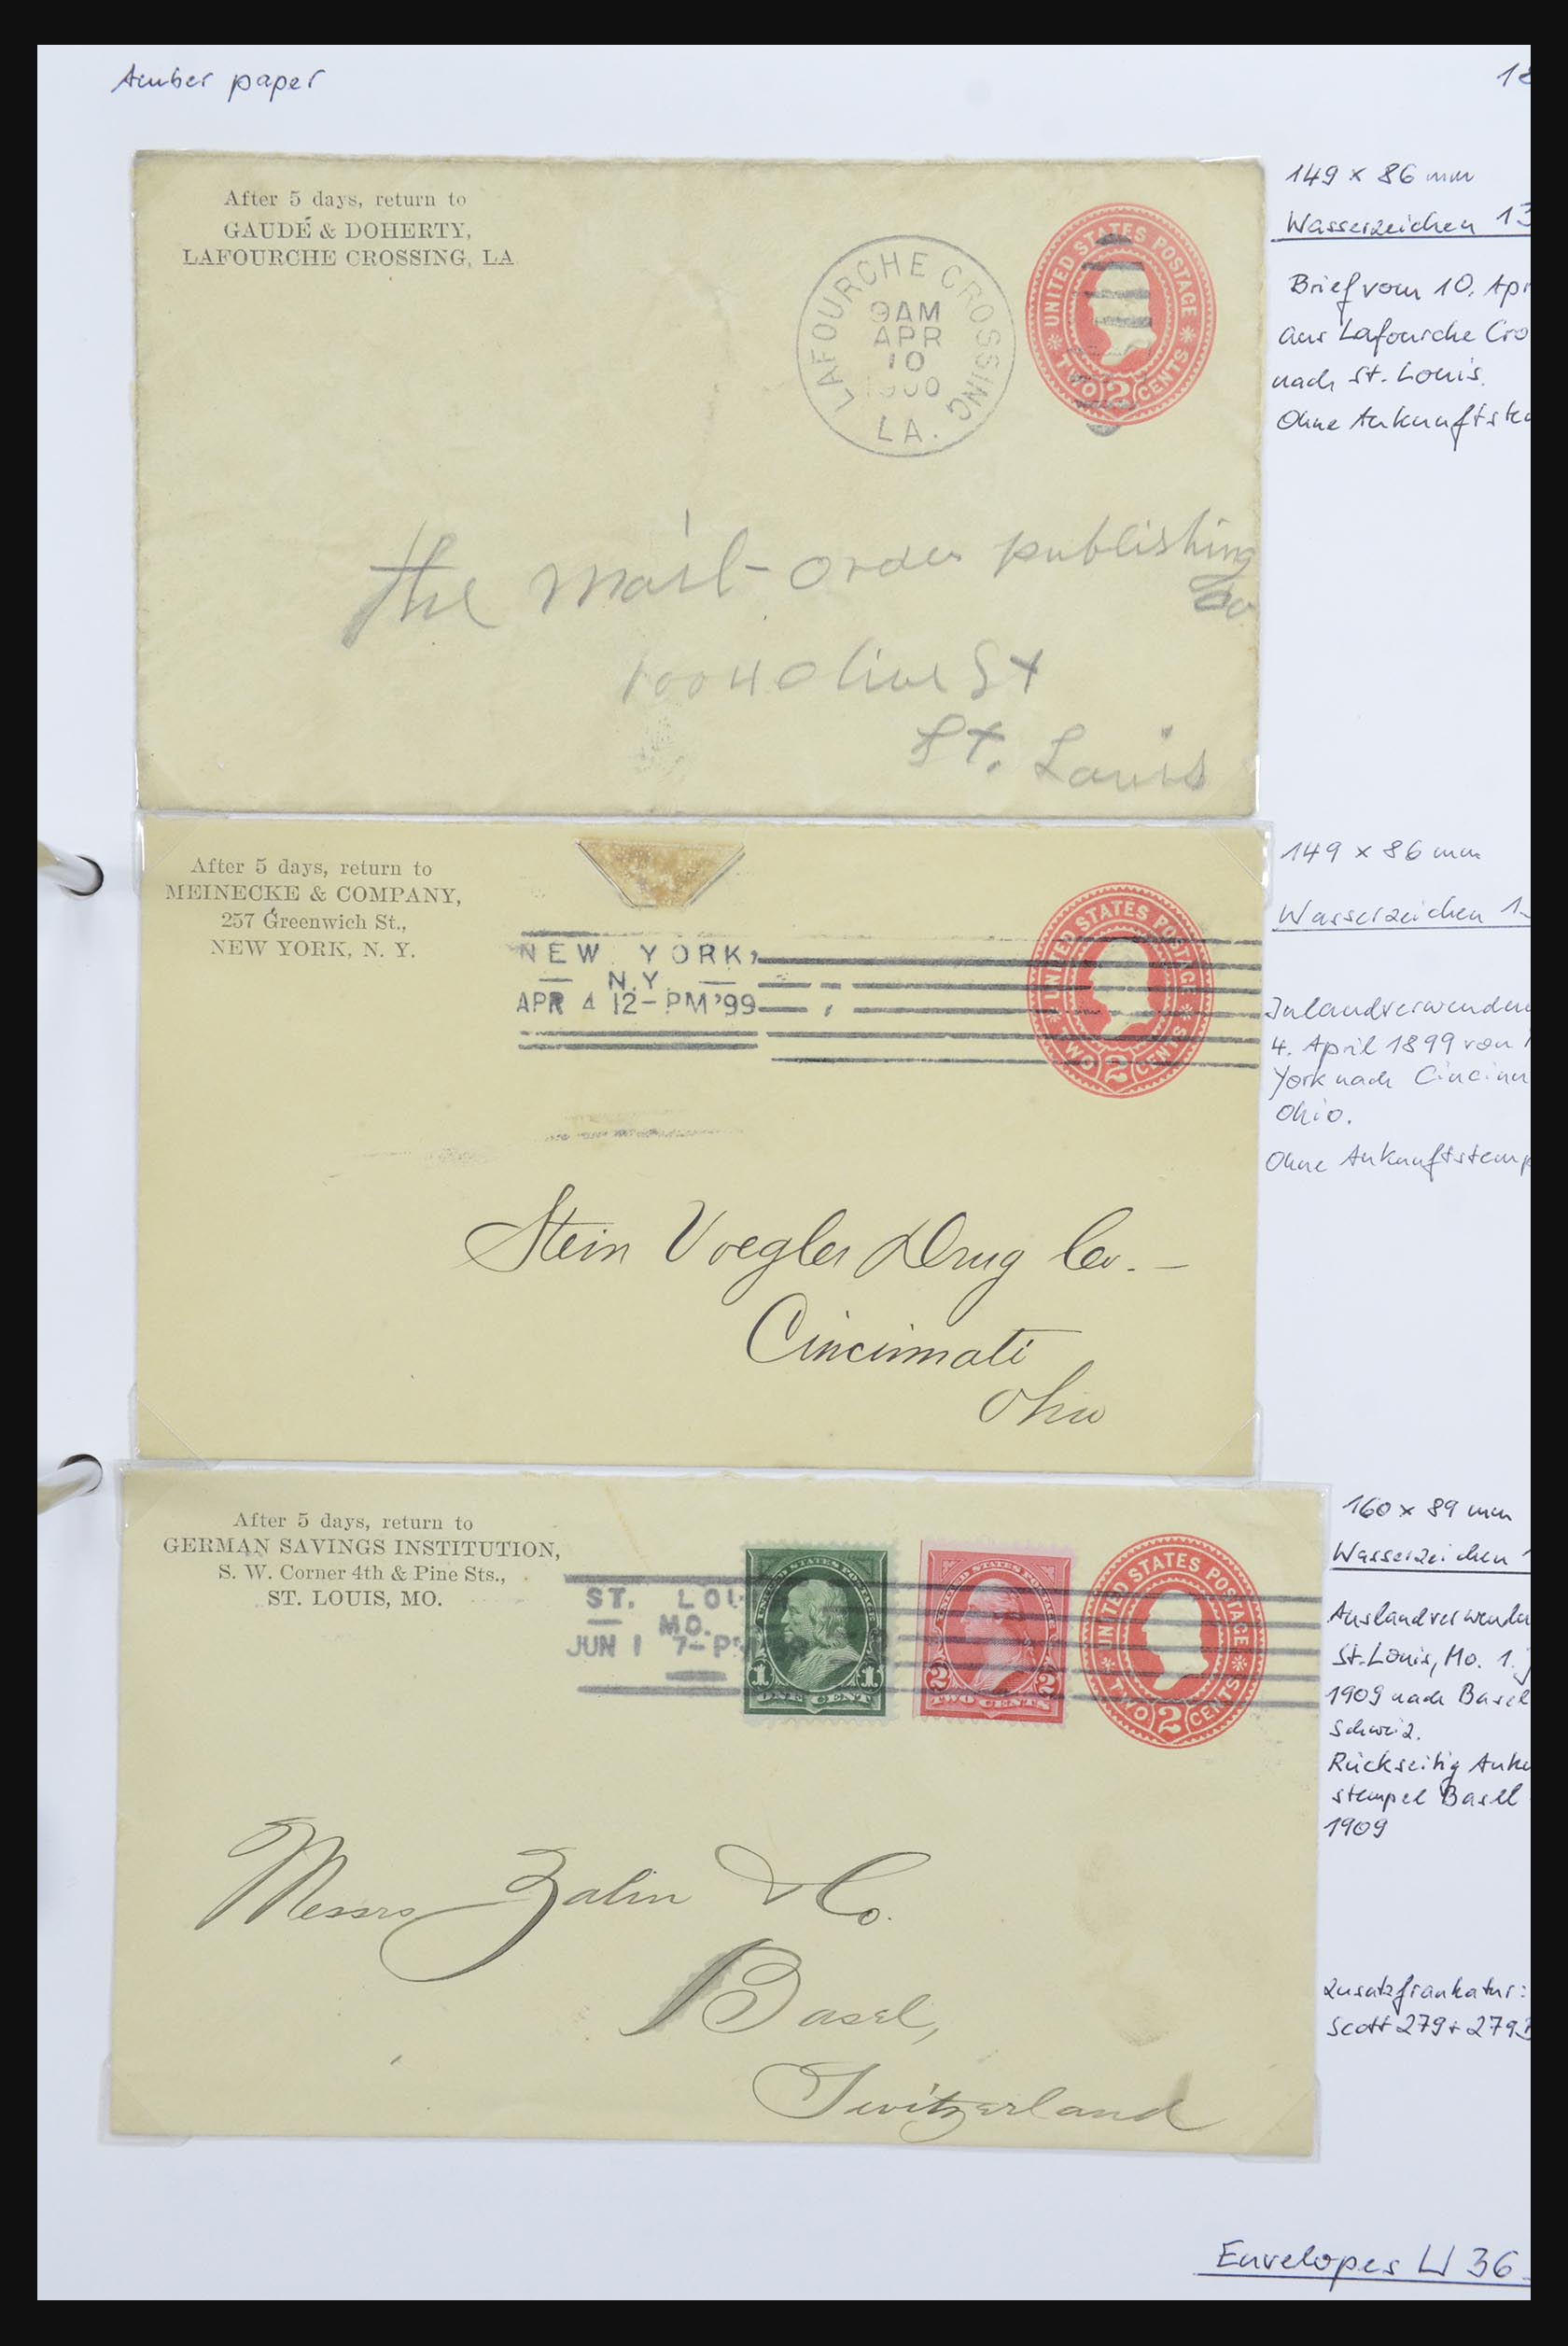 Amber paper
After 5 days, return to
GAUDÉ & DOHERTY,
LAFOURCHE CROSSING, LA
LAFOURCHE CROSSING
9AM
APR
10
1900
LA.
UNITED STATES POSTAGE
TWO 2 CENTS
149 x 86 mm
Wasserzeichen 13
Brief vom 10. Apr
aus Lafourche Cro
nach St. Louis.
Ohne Ankunftste
The mail-order publishing
Co
1004 Olive St
St. Louis
After 5 days, return to
MEINECKE & COMPANY,
257 Greenwich St.,
NEW YORK, N. Y.
NEW YORK,
N.Y.
APR 4 12-PM '99
UNITED STATES POSTAGE
TWO 2 CENTS
149 x 86 mm
Wasserzeichen 1
Inlandverwendun
4. April 1899 von
York nach Cincinn
Ohio.
Ohne Ankunftstemp
Stein Voegler Drug Co. –
Cincinnati
Ohio
After 5 days, return to
GERMAN SAVINGS INSTITUTION,
S. W. Corner 4th & Pine Sts.,
ST. LOUIS, MO.
ST. LOU
MO.
JUN 1 7-P
UNITED STATES POSTAGE
1 1
ONE CENT
UNITED STATES POSTAGE
2 2
TWO CENTS
UNITED STATES POSTAGE
TWO 2 CENTS
160 x 89 mm
Wasserzeichen 1
Auslandverwendu
St. Louis, Mo. 1. J
1909 nach Basel
Schweiz.
Rückseitig Anku
stempel Basel
1909
Messrs Zahn & Co.
Basel,
Switzerland
Zusatzfrankatur:
Scott 279 + 279B
Envelopes U 36